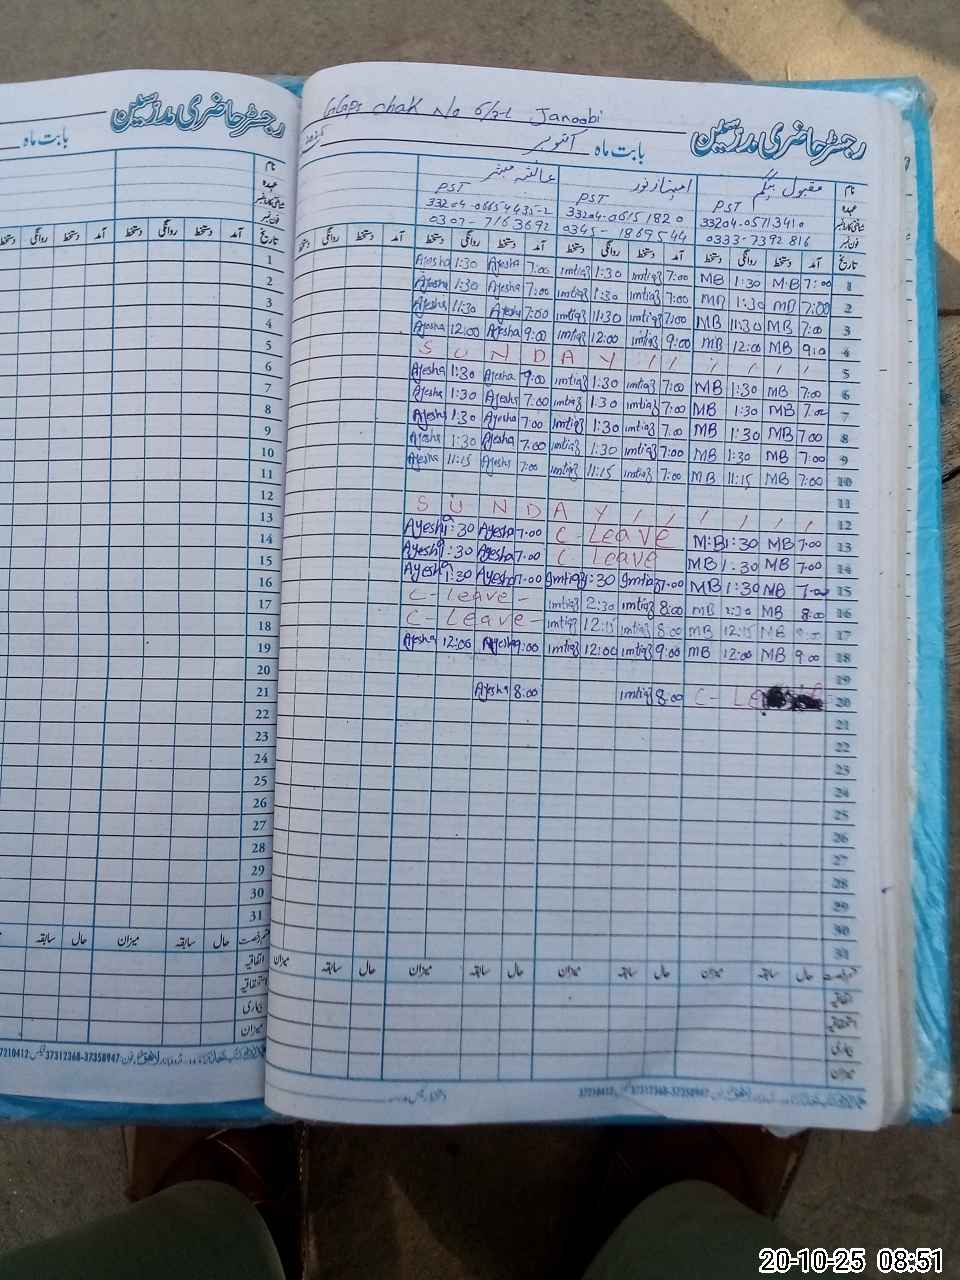 رجسٹر حاضری مدرسین
بابت ماہ
نام
عہدہ
فون نمبر
تاریخ آمد دستخط روانگی دستخط آمد دستخط روانگی
1
2
3
4
5
6
7
8
9
10
11
12
13
14
15
16
17
18
19
20
21
22
23
24
25
26
27
28
29
30
31
حال سابقہ میزان حال سابقہ
اتفاقیہ
بیماری
میزان
37312368-37358947
chak No 6/2-L Janoobi
رجسٹر حاضری مدرسین
بابت ماہ اکتوبر
نام مقبول بیگم
عہدہ PST PST PST
33204-06654435-2 33204-0615182 0 33204-0571341 0
0307-7163692 0345-1869544 0333-7392816
تاریخ آمد دستخط روانگی دستخط آمد دستخط روانگی دستخط آمد دستخط روانگی دستخط آمد
Ayesha 1:30 Ayesha 7:00 imtiaz 1:30 imtiaz 7:00 MB 1:30 M.B 7:00 1
Ayesha 1:30 Ayesha 7:00 imtiaz 1:30 imtiaz 7:00 MB 1:30 MB 7:00 2
Ayesha 11:30 Ayesha 7:00 imtiaz 11:30 imtiaz 7:00 MB 11:30 MB 7:00 3
Ayesha 12:00 Ayesha 9:00 imtiaz 12:00 imtiaz 9:00 MB 12:00 MB 9:0 4
S U N D A Y / / / / / / 5
Ayesha 1:30 Ayesha 9:00 imtiaz 1:30 imtiaz 7:00 MB 1:30 MB 7:00 6
Ayesha 1:30 Ayesha 7:00 imtiaz 1:30 imtiaz 7:00 MB 1:30 MB 7:00 7
Ayesha 1:30 Ayesha 7:00 imtiaz 1:30 imtiaz 7:00 MB 1:30 MB 7:00 8
Ayesha 1:30 Ayesha 7:00 imtiaz 1:30 imtiaz 7:00 MB 1:30 MB 7:00 9
Ayesha 11:15 Ayesha 7:00 imtiaz 11:15 imtiaz 7:00 MB 11:15 MB 7:00 10
11
S U N D A Y / / / / / / 12
Ayesha 1:30 Ayesha 7:00 C - Leave M:B 1:30 MB 7:00 13
Ayesha 1:30 Ayesha 7:00 C Leave MB 1:30 MB 7:00 14
Ayesha 1:30 Ayesha 7:00 Imtiaz 1:30 Imtiaz 7:00 MB 1:30 MB 7:00 15
C - Leave - imtiaz 2:30 imtiaz 8:00 MB 2:30 MB 8:00 16
C - Leave - imtiaz 12:15 imtiaz 8:00 MB 12:15 MB 17
Ayesha 12:00 Ayesha 9:00 imtiaz 12:00 imtiaz 9:00 MB 12:00 MB 9:00 18
19
Ayesha 8:00 imtiaz 8:00 C- 20
21
22
23
24
25
26
27
28
29
30
31
حال سابقہ میزان حال سابقہ میزان حال سابقہ میزان حال سابقہ میزان
اتفاقیہ
بیماری
میزان
37312368-37358947
20-10-25 08:51